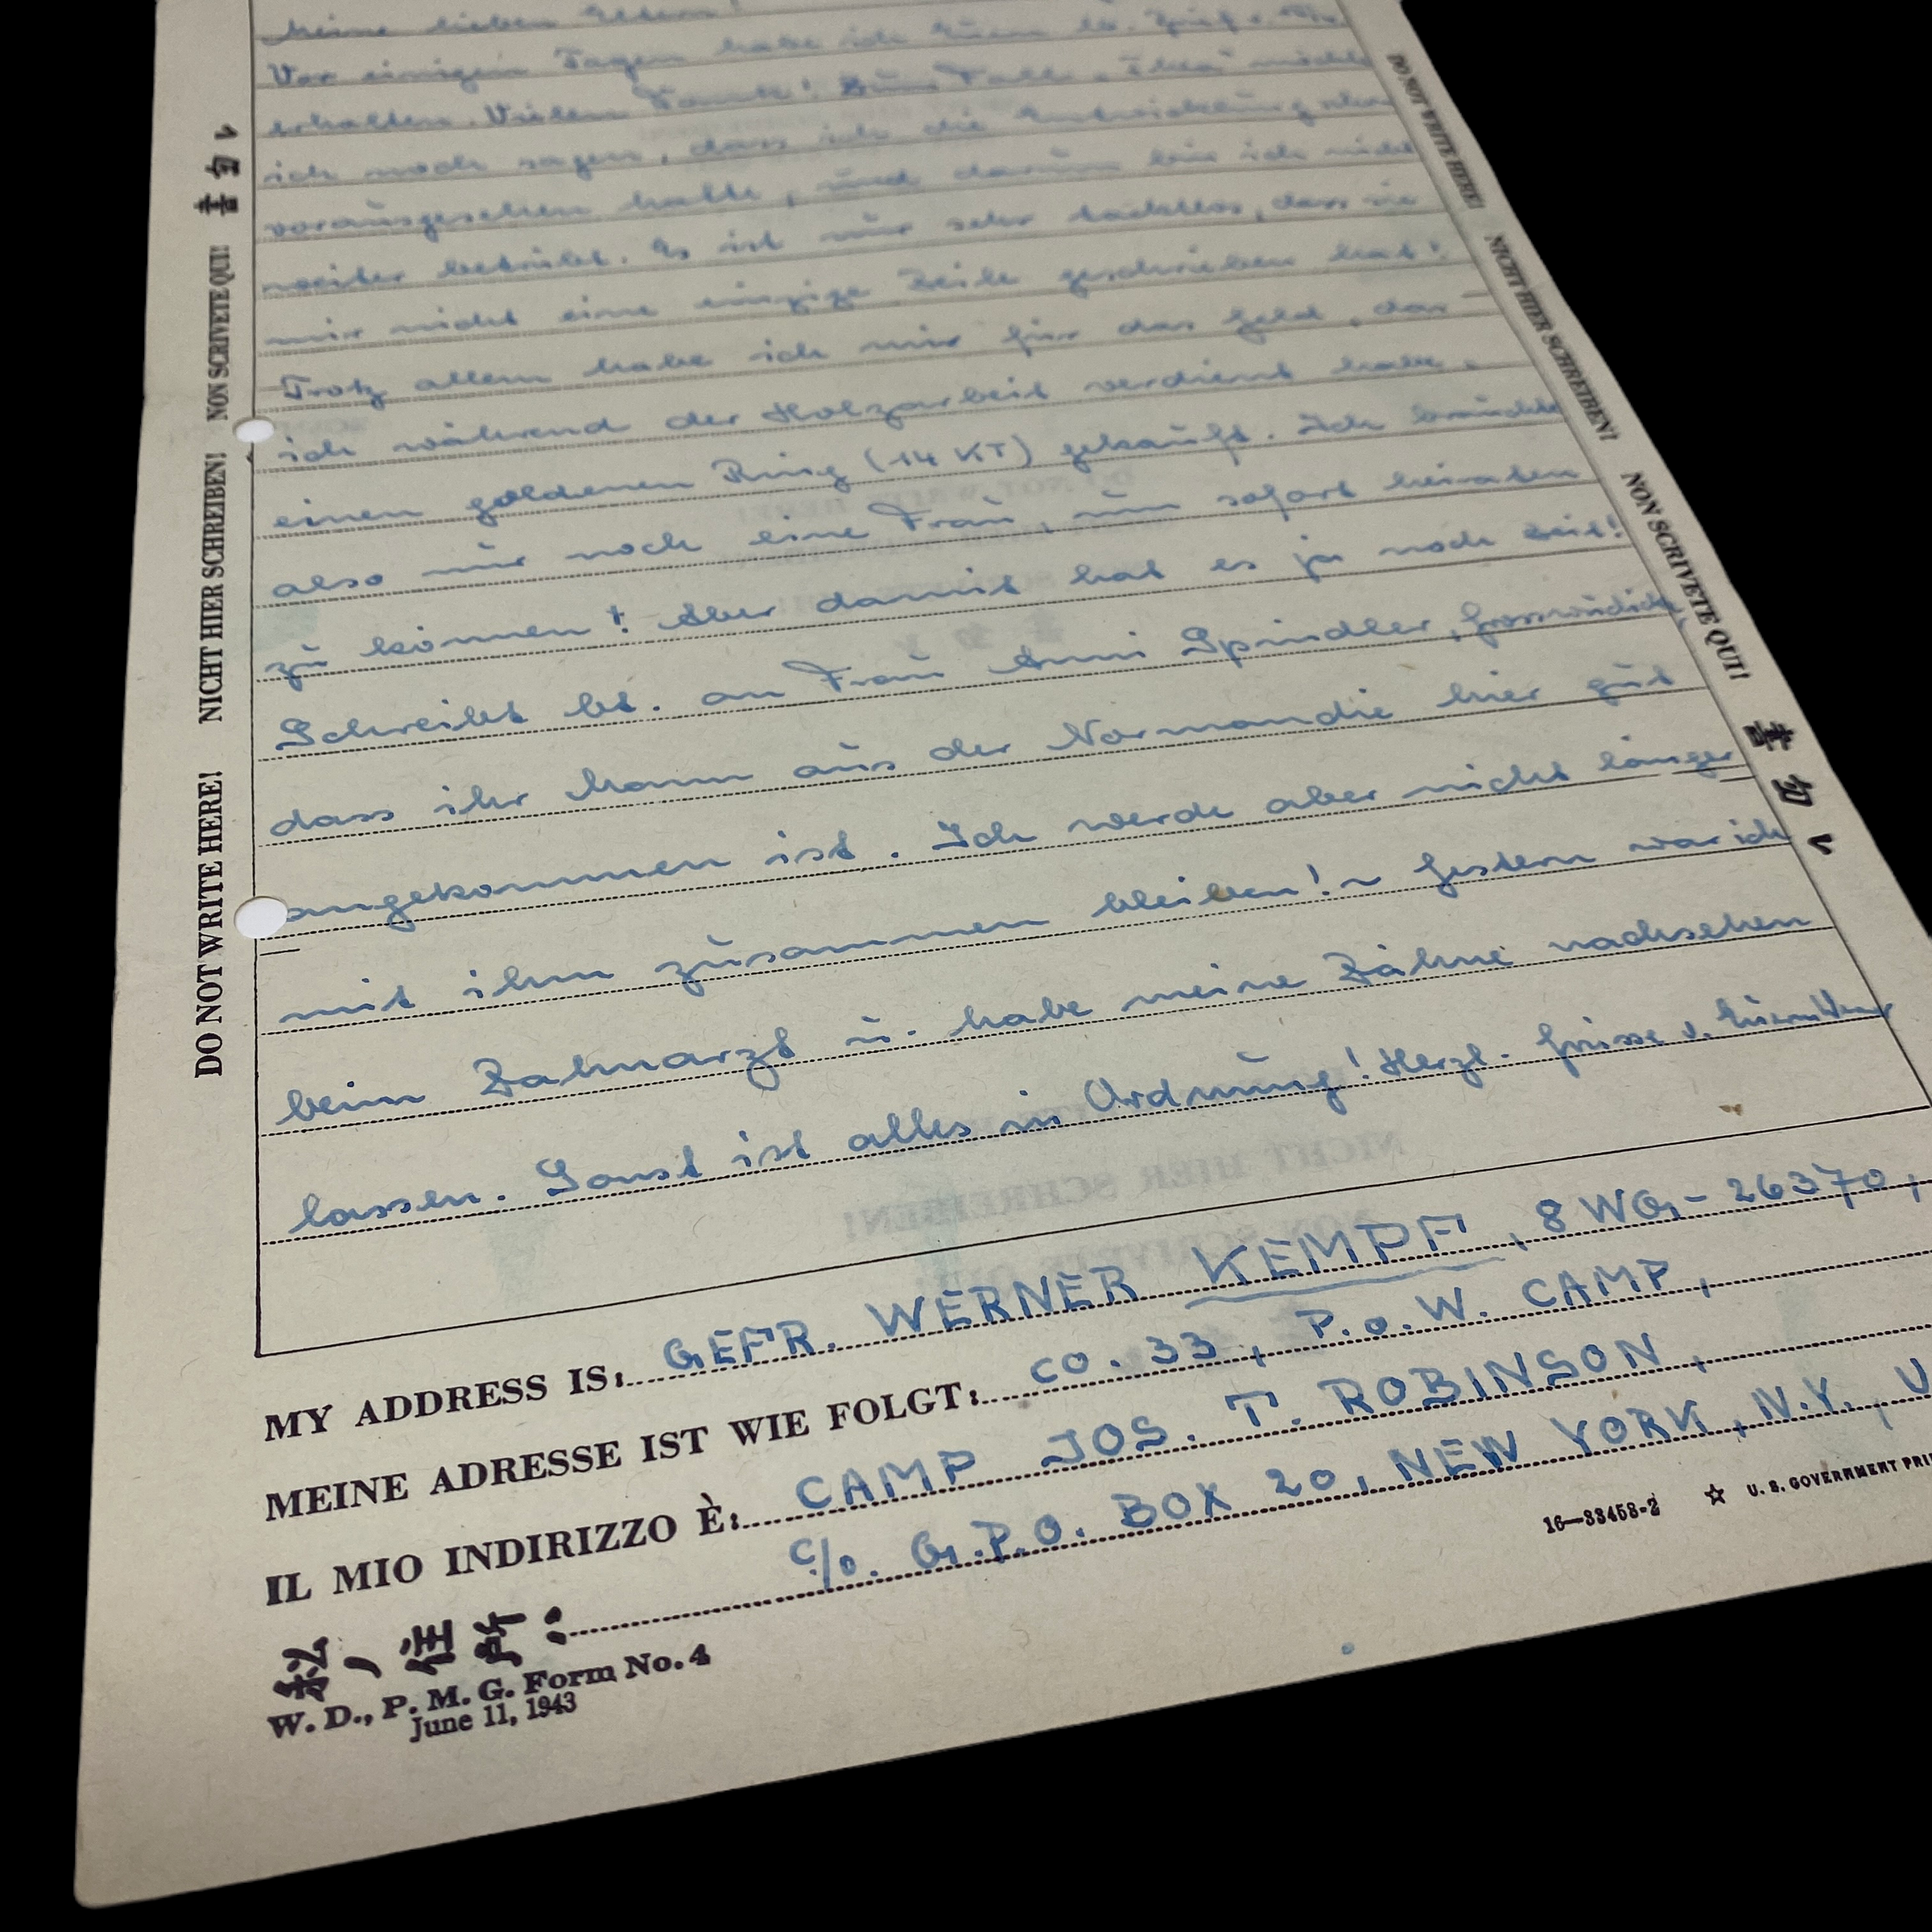 Meine lieben Eltern!
Vor einigen Tagen habe ich Euren lb. Brief v.
erhalten. Vielen Dank! Zum Falle "Thea" möchte
ich noch sagen, dass ich die Entwicklung schon
vorausgesehen hatte, und darum bin ich nicht
weiter betrübt. Es ist nur sehr tacktlos, dass sie
mir nicht eine einzige Zeile geschrieben hat!
Trotz allem habe ich mir für das Geld, das
ich während der Holzarbeit verdient habe,
einen goldenen Ring (14 KT) gekauft. Ich brauchte
also nur noch eine Frau, um sofort heiraten
zu können! Aber damit hat es ja noch Zeit!
Schreibt bt. an Frau Anni Spindler,
dass ihr Mann aus der Normandie hier gut
angekommen ist. Ich werde aber nicht länger
mit ihm zusammen bleiben! ~ Gestern war ich
beim Zahnarzt u. habe meine Zähne nachsehen
lassen. Sonst ist alles in Ordnung! Herzl. Grüsse v. Eurem Werner
DO NOT WRITE HERE! NICHT HIER SCHREIBEN! NON SCRIVETE QUI!
DO NOT WRITE HERE! NICHT HIER SCHREIBEN! NON SCRIVETE QUI!
MY ADDRESS IS: GEFR. WERNER KEMPF, 8 WG-26370,
MEINE ADRESSE IST WIE FOLGT: CO. 33, P.o.W. CAMP,
IL MIO INDIRIZZO È: CAMP JOS. T. ROBINSON,
私ノ住所: c/o. G.P.O. BOX 20, NEW YORK, N.Y., U
W. D., P. M. G. Form No. 4
June 11, 1943
16—33458-2 ☆ U. S. GOVERNMENT PRI